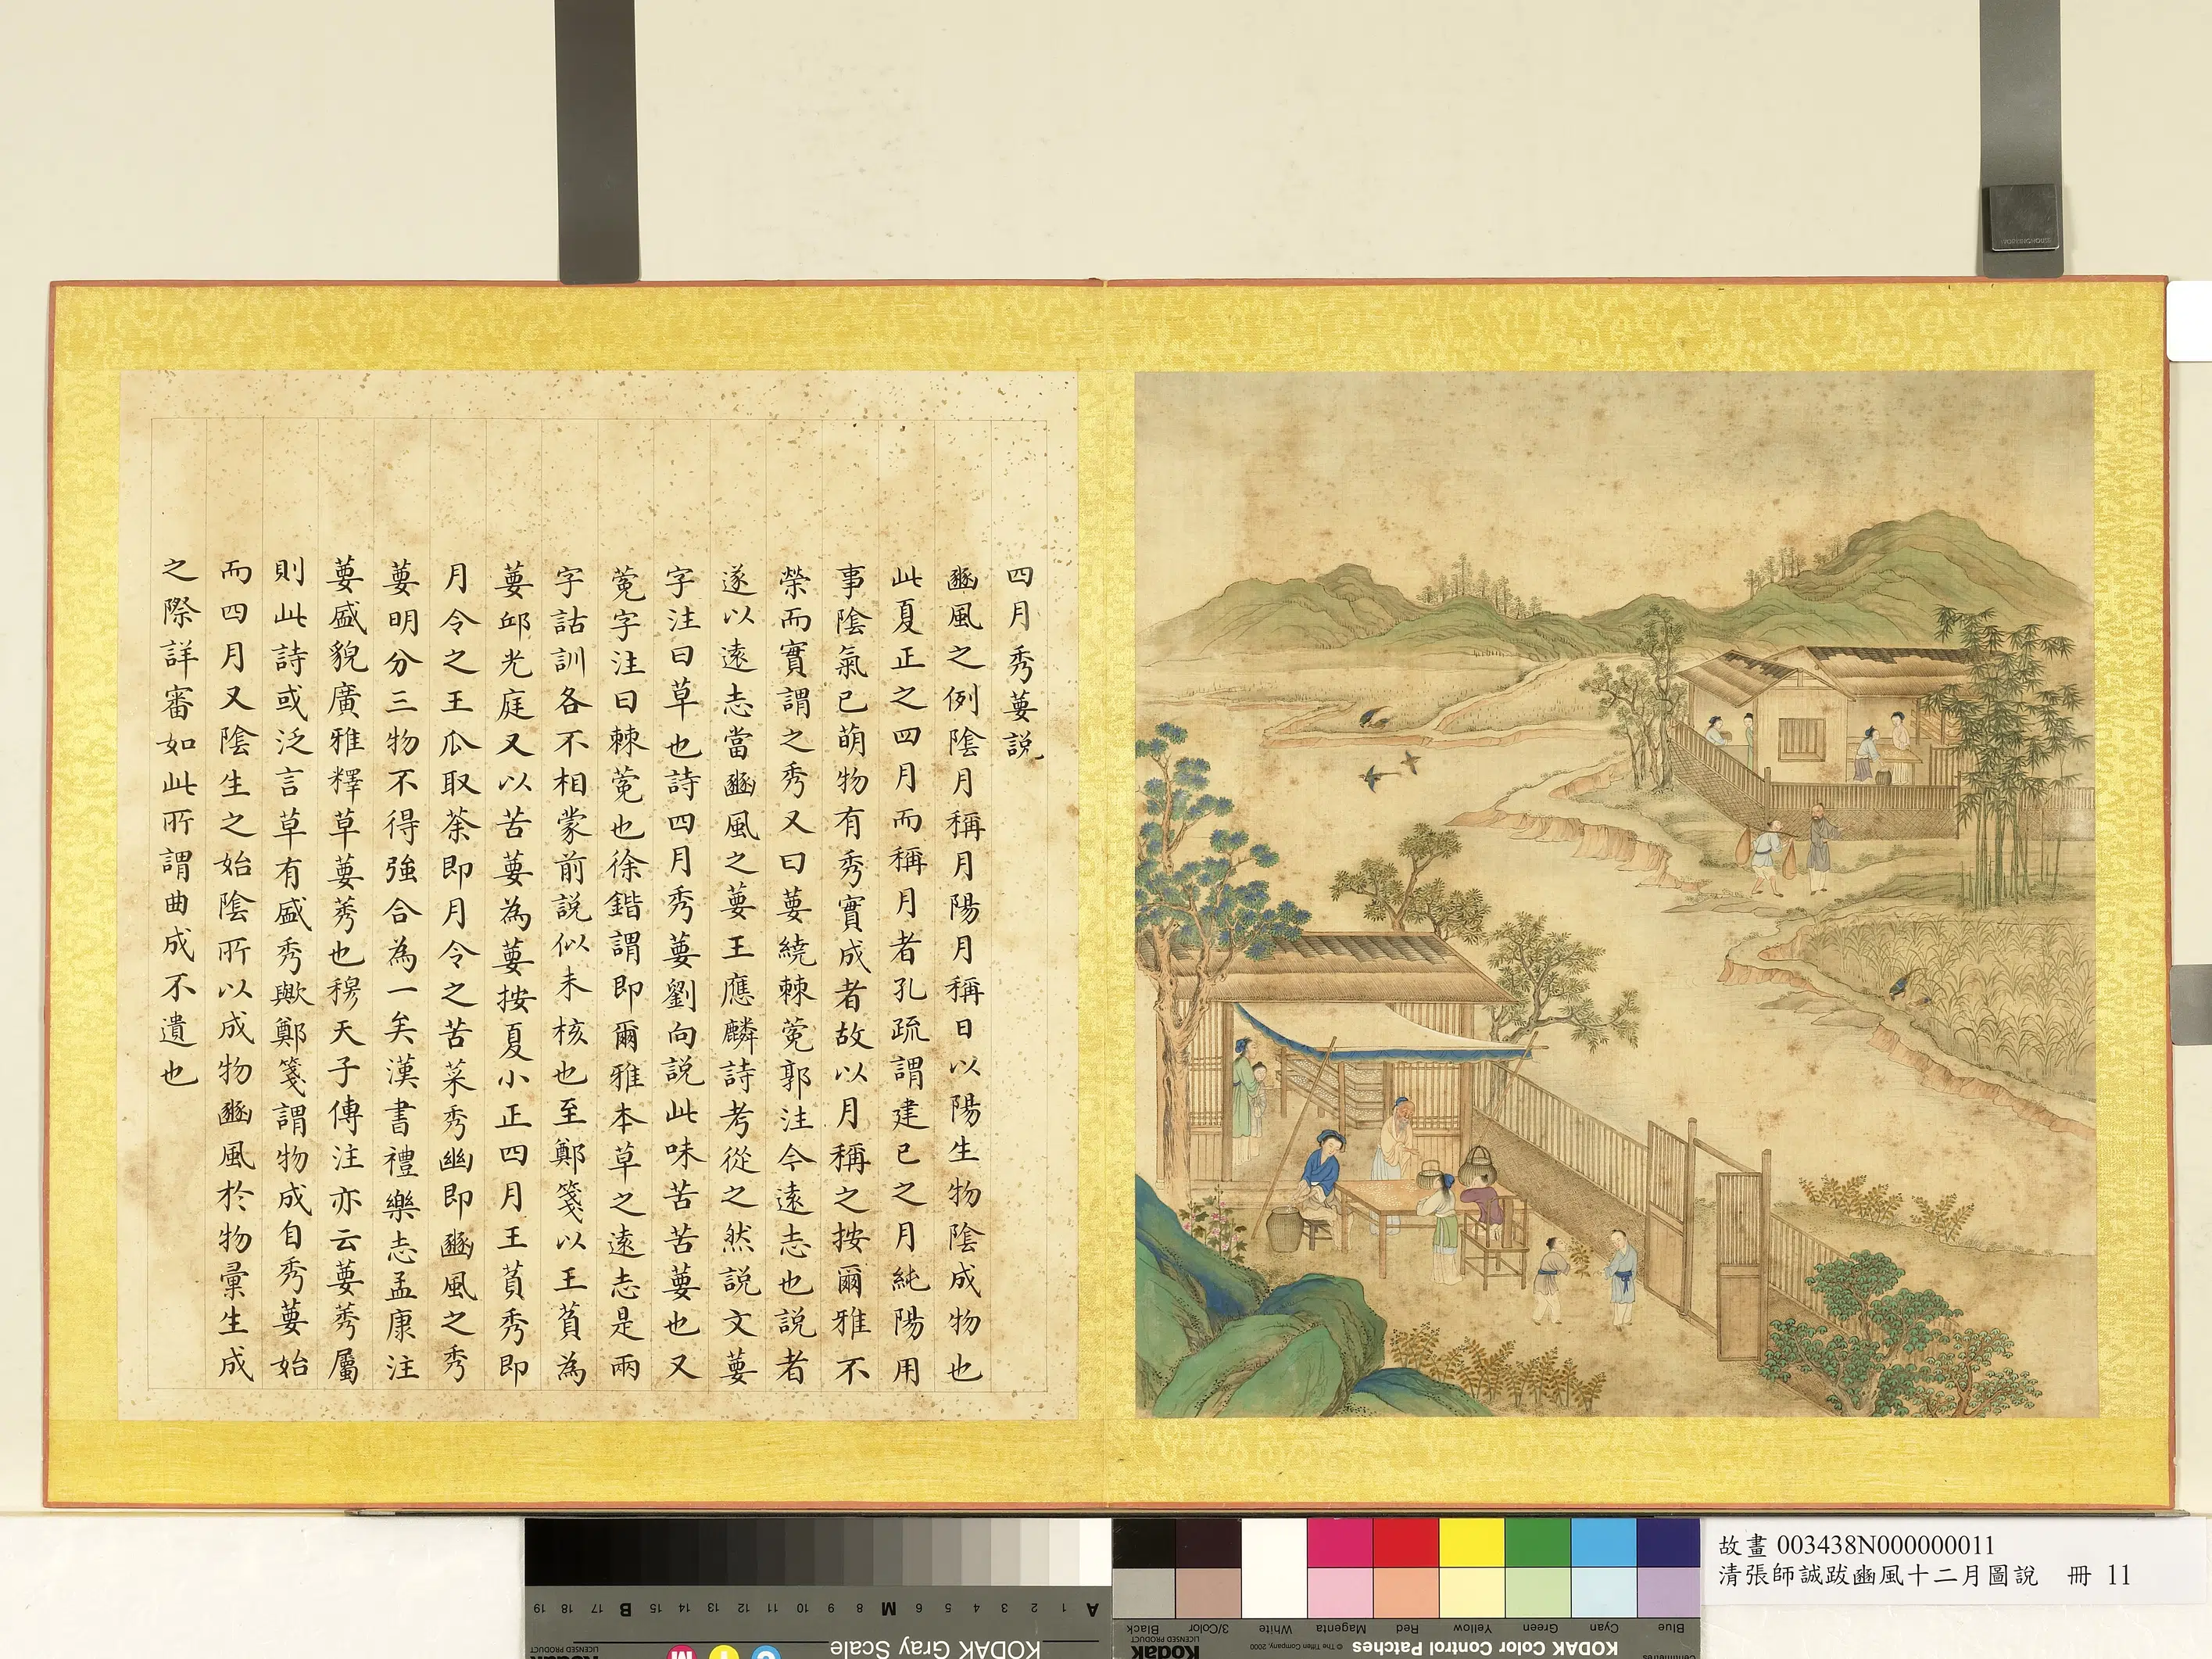 四月秀葽說
豳風之例陰月稱月陽月稱日以陽生物陰成物也
此夏正之四月而稱月者孔疏謂建已之月純陽用
事陰氣已萌物有秀實成者故以月稱之按爾雅不
榮而實謂之秀又曰葽繞棘蒬郭注今遠志也說者
遂以遠志當豳風之葽王應麟詩考從之然說文葽
字注曰草也詩四月秀葽劉向說此味苦苦葽也又
蒬字注曰棘蒬也徐鍇謂即爾雅本草之遠志是兩
字詁訓各不相蒙前說似未核也至鄭箋以王萯為
葽邱光庭又以苦葽為葽按夏小正四月王萯秀即
月令之王瓜取荼即月令之苦菜秀幽即豳風之秀
葽明分三物不得強合為一矣漢書禮樂志孟康注
葽盛貌廣雅釋草葽莠也穆天子傳注亦云葽莠屬
則此詩或泛言草有盛秀歟鄭箋謂物成自秀葽始
而四月又陰生之始陰所以成物豳風於物彙生成
之際詳審如此所謂曲成不遺也
故畫 003438N000000011
清張師誠跋豳風十二月圖說 冊 11
KODAK Gray Scale
A 1 2 3 4 5 6 M 8 9 10 11 12 13 14 15 B 17 18 19
C Y M
Kodak
LICENSED PRODUCT
KODAK Color Control Patches
© The Tiffen Company, 2000
Kodak
LICENSED PRODUCT
Blue Cyan Green Yellow Red Magenta White 3/Color Black
Centimetres